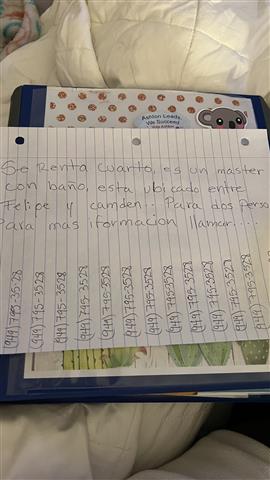 Ashton Leads,
We Succeed
Se Renta cuarto, es un master
con baño, esta ubicado entre
Felipe y camden.. Para dos perso
Para mas iformacion llamar....
(949)795-35-28
(949)795-3528
(949)795-3528
(949)795-3528
(949)795-3528
(949)795-3528
(949)795-3528
(949)795-3528
(949)795-3528
(949)795-3527
(949)7953528